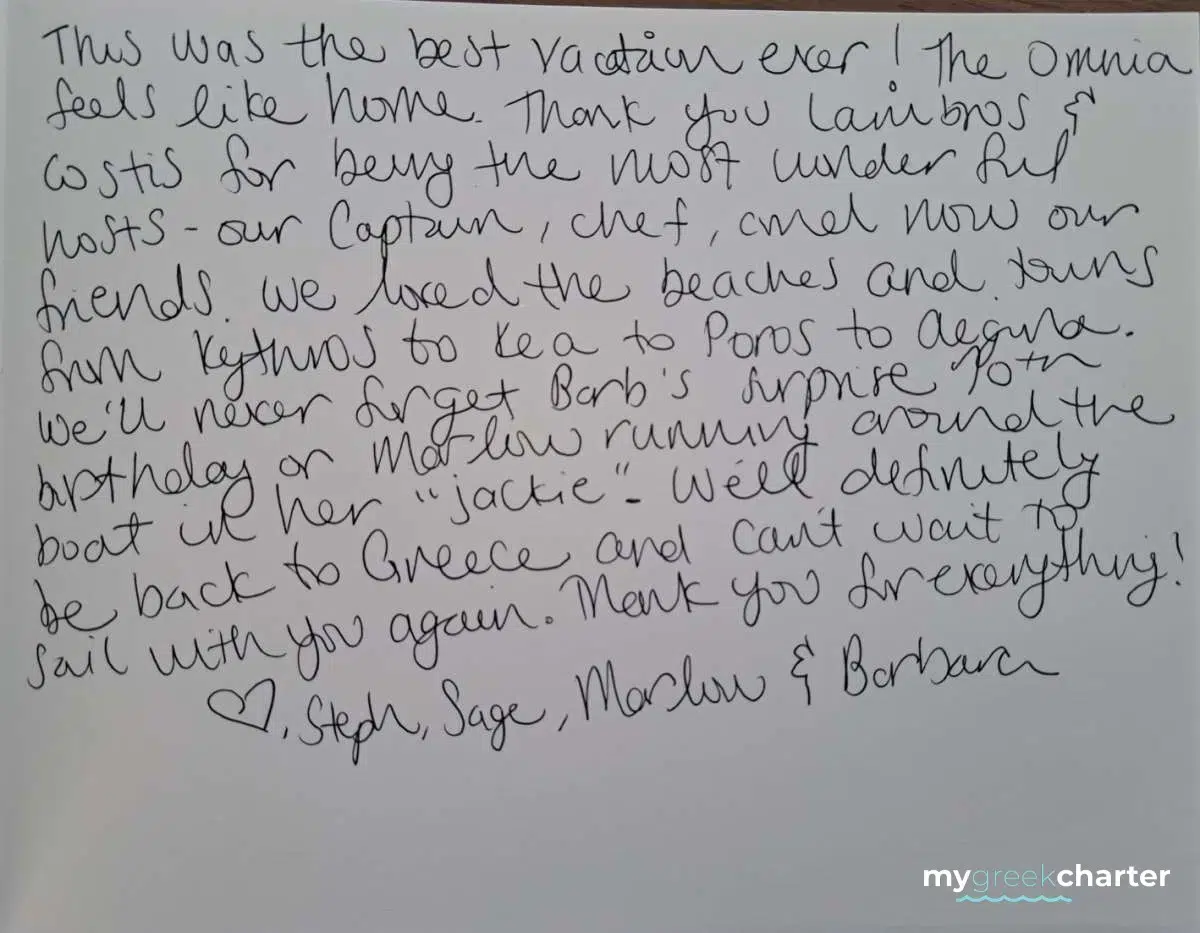 This was the best vacation ever! The Omnia
feels like home. Thank you Lambros &
Costis for being the most wonderful
hosts - our Captain, chef, and now our
friends. We loved the beaches and towns
from Kythnos to Kea to Poros to Aegina.
We'll never forget Barb's surprise 70th
birthday or Marlow running around the
boat in her "jackie". We'll definitely
be back to Greece and can't wait to
sail with you again. Thank you for everything!
♡, Steph, Sage, Marlow & Barbara
mygreekcharter